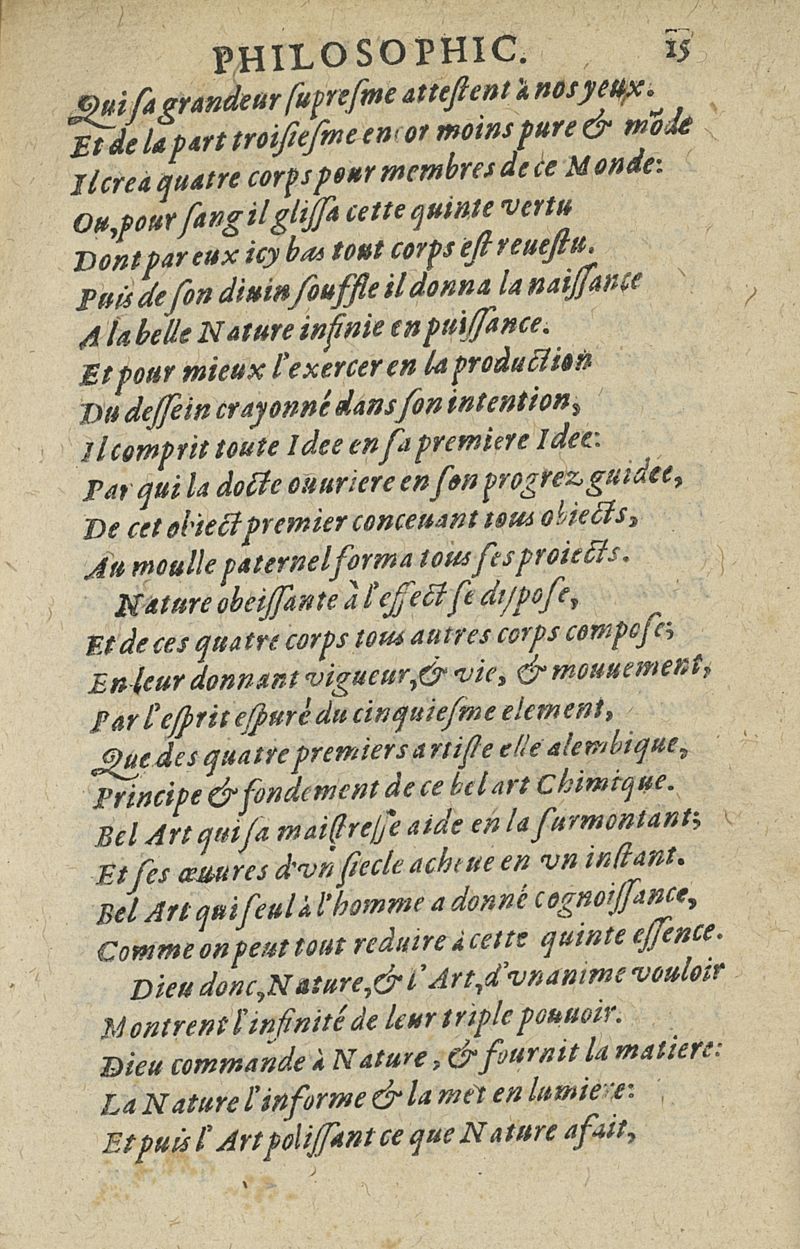 PHILOSOPHIC. 15
Qui sa grandeur supresme attestent à nos yeux.
Et de la part troisiesme encor moins pure & mõde
Il crea quatre corps pour membres de ce Monde:
Ou, pour sang il glissa cette quinte vertu
Dont par eux icy bas tout corps est reuestu.
Puis de son diuin souffle il donna la naissance
A la belle Nature infinie en puissance.
Et pour mieux l'exercer en la production
Du dessein crayonné dans son intention,
Il comprit toute Idee en sa premiere Idee:
Par qui la docte ouuriere en son progrez guidee,
De cet obiect premier conceuant tous obiects,
Au moulle paternel forma tous ses proiects.
Nature obeissante à l'effect se dispose,
Et de ces quatre corps tous autres corps compose;
En leur donnant vigueur, & vie, & mouuement,
Par l'esprit espuré du cinquiesme element,
Que des quatre premiers artiste elle alembique,
Principe & fondement de ce bel art Chimique.
Bel Art qui sa maistresse aide en la surmontant;
Et ses œuures d'vn siecle acheue en vn instant.
Bel Art qui seul à l'homme a donné cognoissance,
Comme on peut tout reduire à cette quinte essence.
Dieu donc, Nature, & l'Art, d'vnanime vouloir
Montrent l'infinité de leur triple pouuoir.
Dieu commande à Nature, & fournit la matiere:
La Nature l'informe & la met en lumiere:
Et puis l'Art polissant ce que Nature a fait,